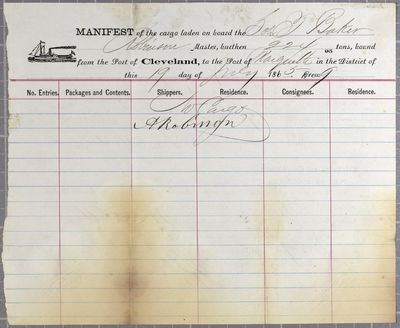 MANIFEST of the cargo laden on board the Baker
Robinson Master, burthen 224 95 tons, bound
from the Port of Cleveland, to the Port of in the District of
this 19 day of July 186 Crew 9
No. Entries. Packages and Contents. Shippers. Residence. Consignees. Residence.
No Cargo
A Robinson